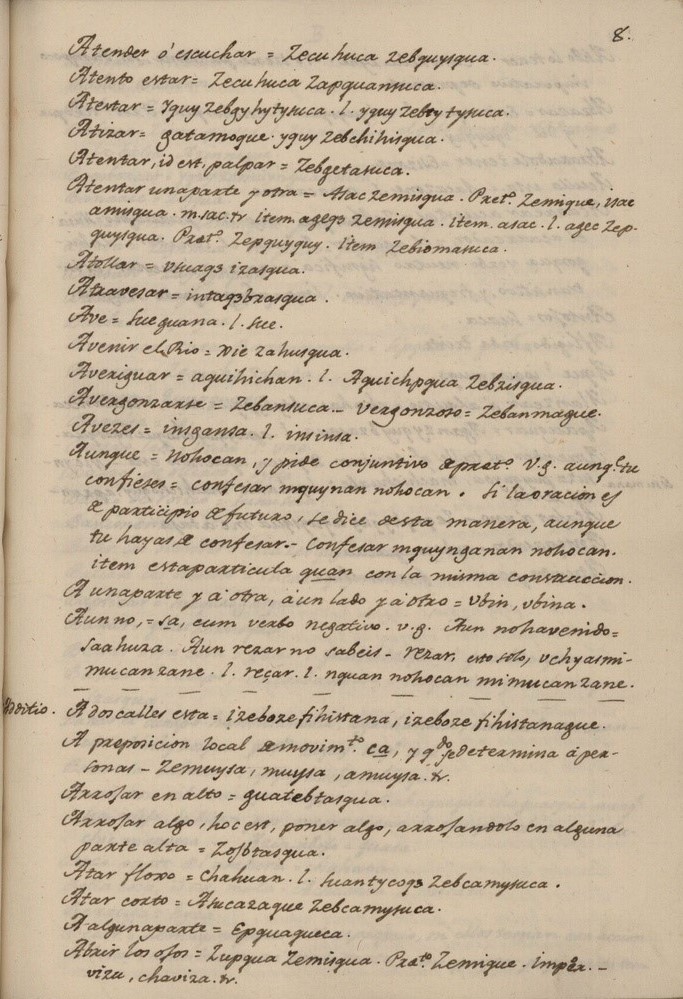 8.
Atender ó escuchar = Zecuhuca zebquysqua.
Atento estar = Zecuhuca zapquansuca.
Atestar = yquy zebgyhytysuca. l. yquy zebtytysuca.
Atizar = gatamoque yquy zebchihisqua.
Atentar, id est, palpar = Zebgetasuca.
Atentar una parte y otra = Asac zemisqua. Pret.º Zemique, isac
amisqua. m.sac. &r item ageqs zemisqua. item. asac. l. agec zep-
quysqua. Pret.º Zepquyquy. item Zebiomasuca.
Atollar = vsuaqs izasqua.
Atravesar = intaqsbzasqua.
Ave = sueguana. l. sue.
Avenir el Rio = xie zahusqua.
Averiguar = aquihichan. l. Aquichpqua Zebzisqua.
Avergonzarse = Zebansuca - vergonzoso = Zebanmague.
Avezes = insgansa. l. insinsa.
Aunque = nohocan, y pide conjuntivo de pret.º V.g. aunq.e tu
confieses = confesar mquynan nohocan. Si la oracion es
de participio de futuro, se dice desta manera, aunque
tu hayas de confesar. - Confesar mquynganan nohocan.
item esta particula quan con la misma construccion.
A una parte y a otra, á un lado y a otro = vbin, vbina.
Aun no, = sa, cum verbo negativo. v.g. Aun no ha venido =
saahuza. Aun rezar no sabeis - rezar, esto solo, vchyasmi-
mucanzane. l. reçar. l. nquan nohocan mimucanzane.
Additio. A dos calles esta = izeboze fihistana, izeboze fihistanaque.
A preposicion local de movim.to ca, y q.do se determina á per-
sonas - Zemuysa, muysa, amuysa. &r.
Arrojar en alto = guatebtasqua.
Arrojar algo, hoc est, poner algo, arrojandolo en alguna
parte alta = Zosbtasqua.
Atar floxo = chahuan. l. suantycoqs Zebcamysuca.
Atar corto = Asucazaque Zebcamysuca.
A alguna parte = Epquaqueca.
Abrir los ojos = Zupqua Zemisqua. Pret.º Zemique. imper. -
viza, chaviza. &r.